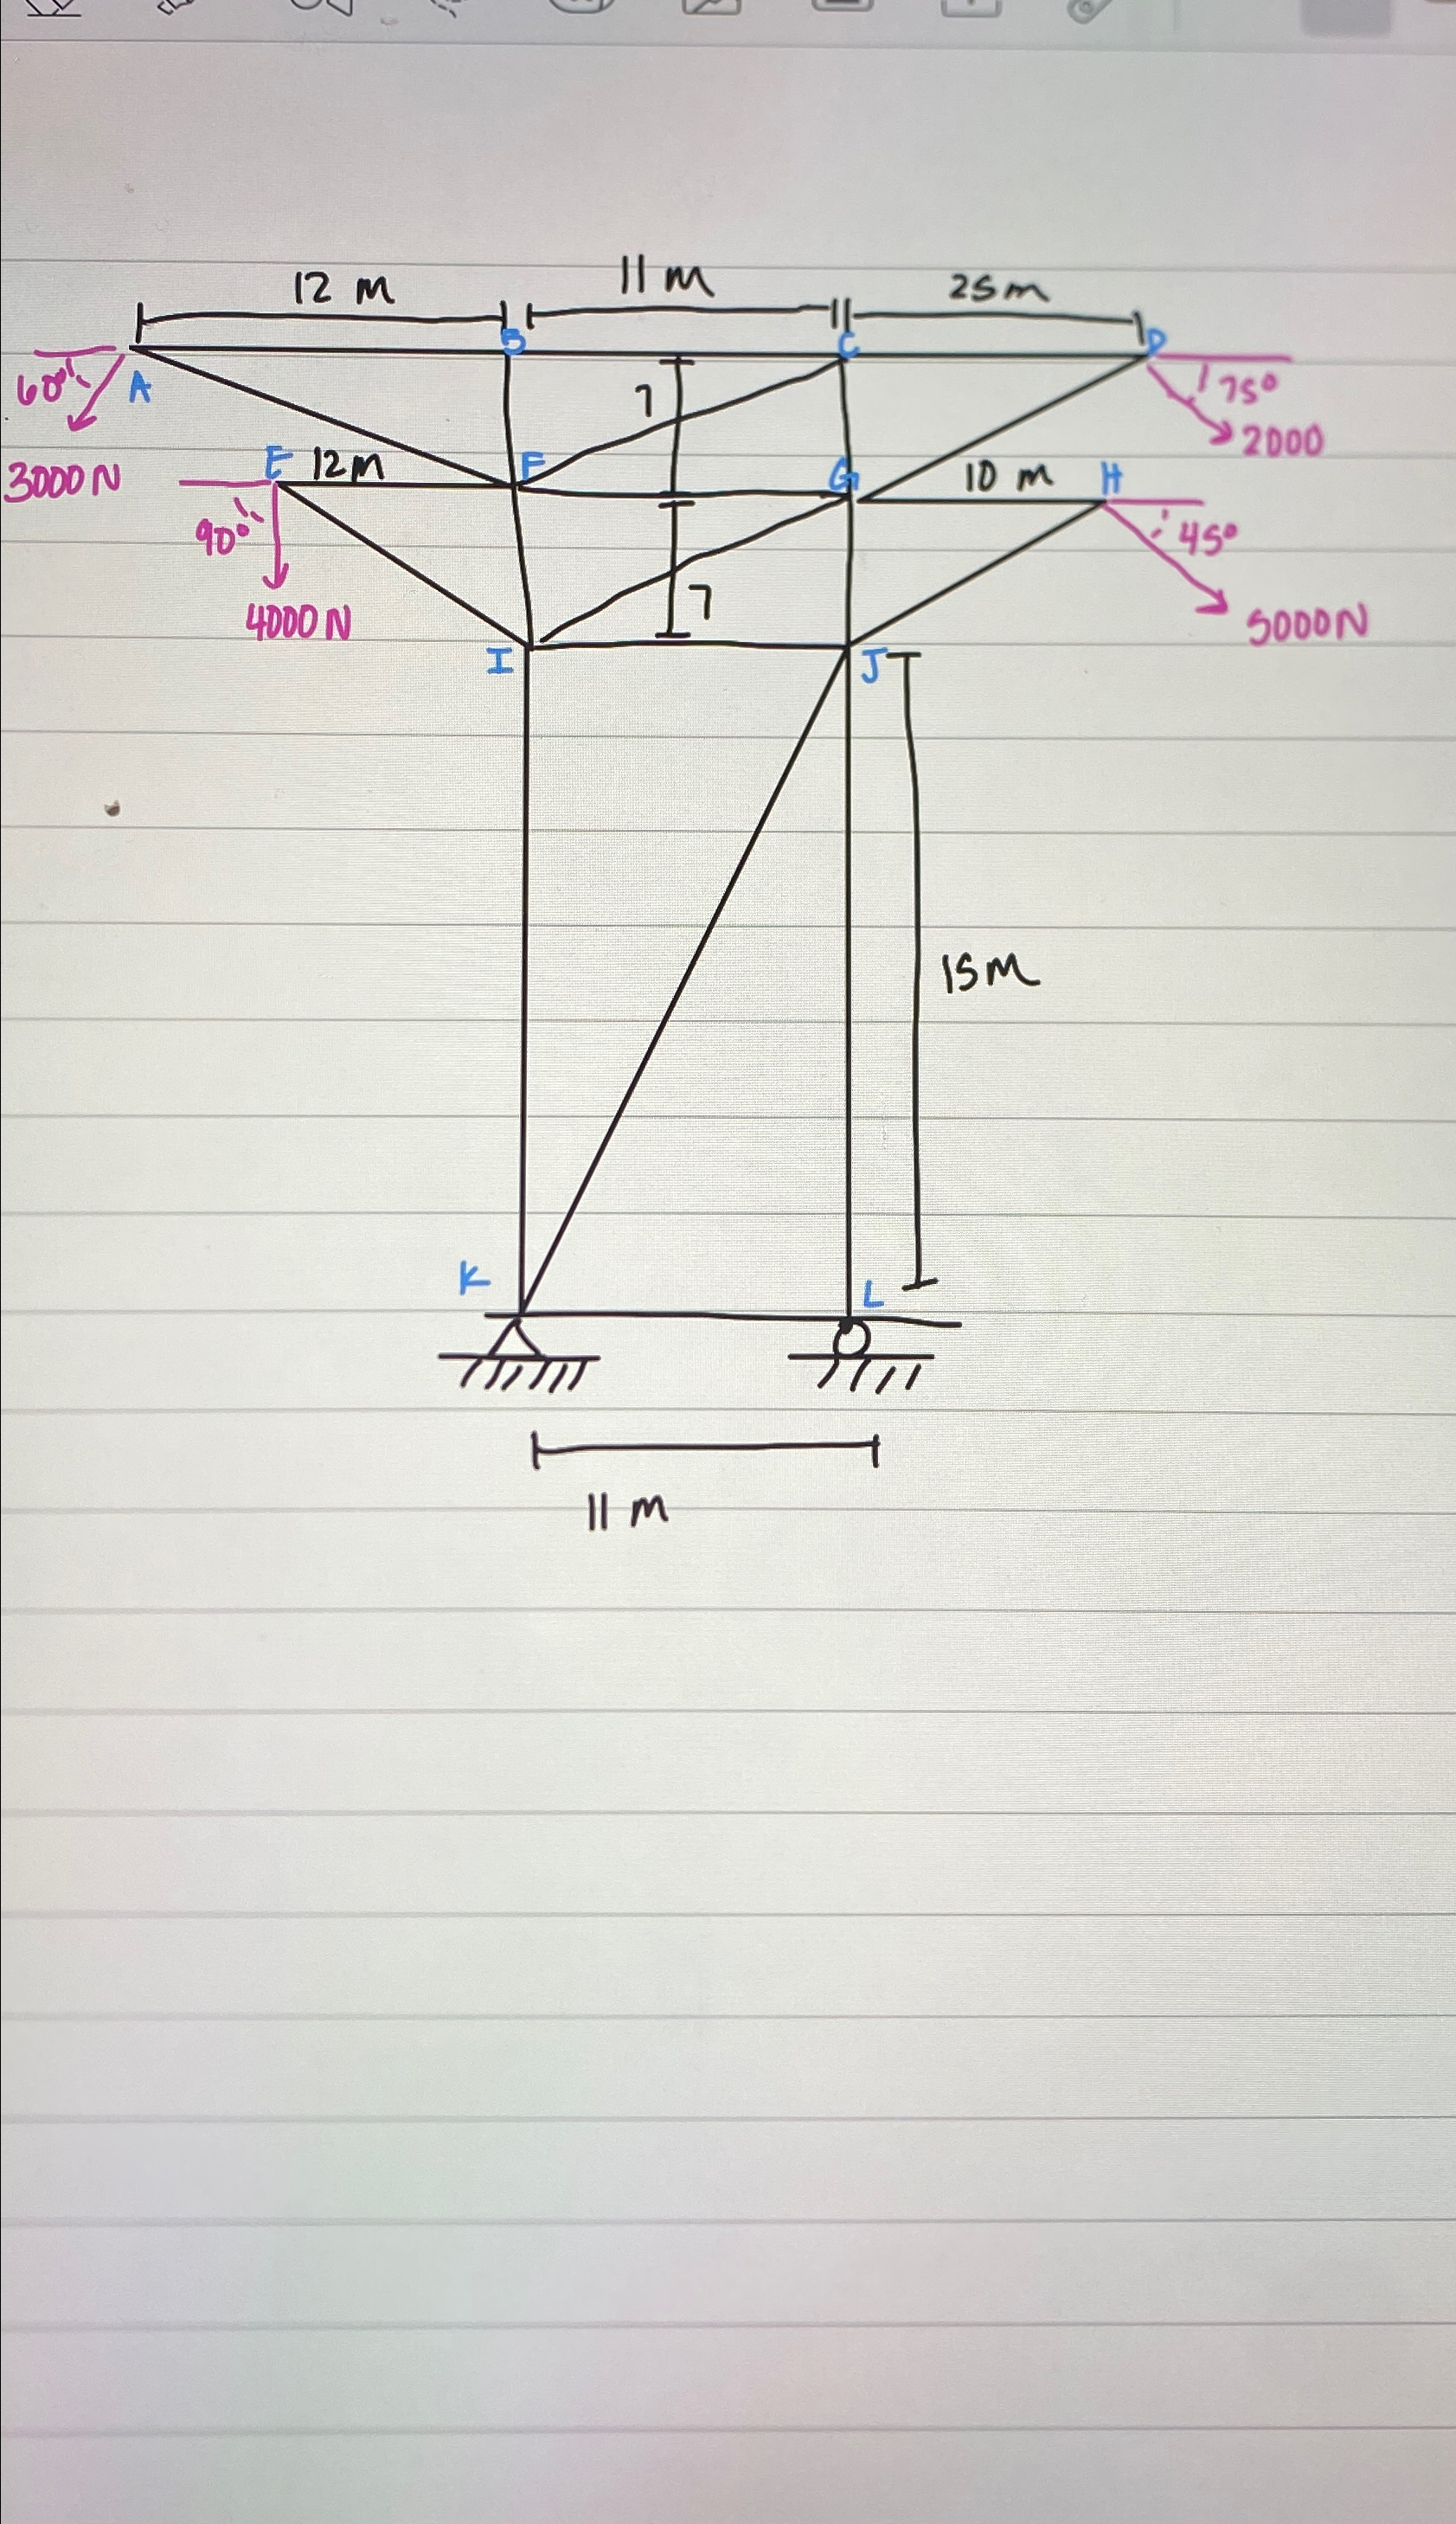 12 m
11 m
25m
B
C
D
60°
A
7
75°
3000 N
2000
E 12m
F
G
10 m
H
90°
45°
4000 N
7
5000N
I
J
15m
K
L
11 m